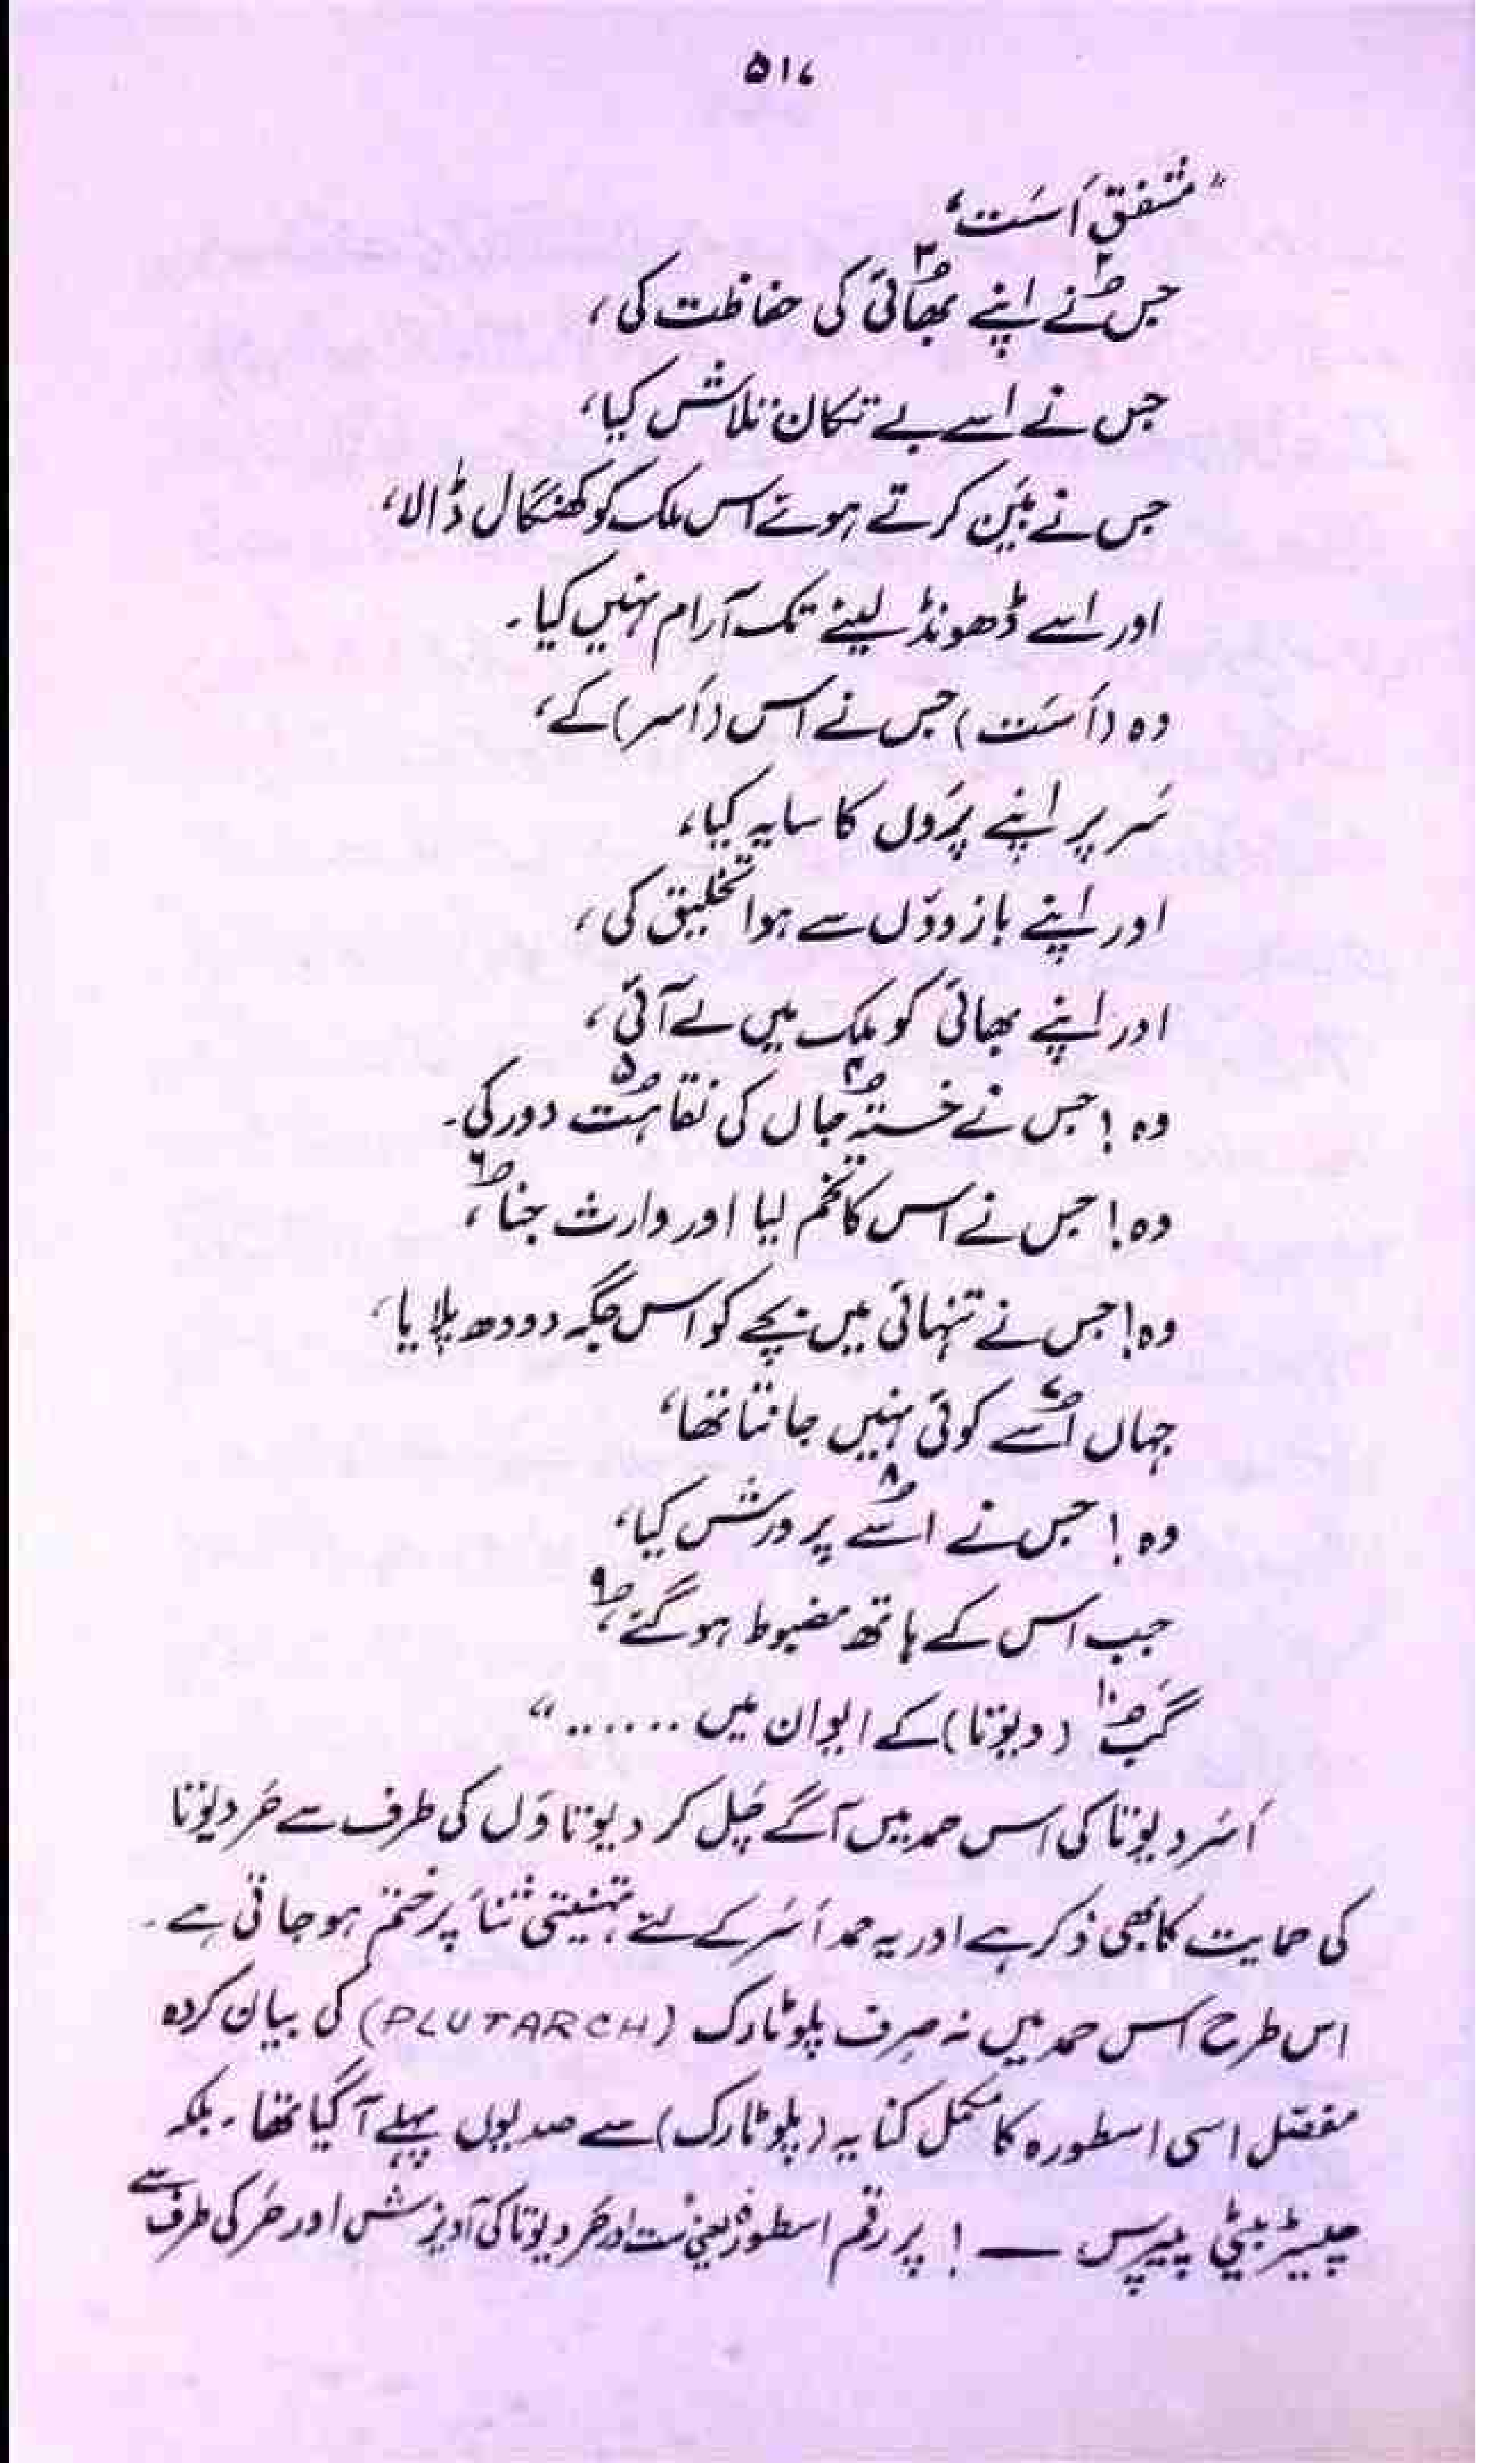 ۵۱۷
"مشفق اَسَت،
جس۲ نے اپنے بھائی۳ کی حفاظت کی،
جس نے اسے بے تکان تلاش کیا،
جس نے بَین کرتے ہوئے اس ملک کو کھنگال ڈالا،
اور اسے ڈھونڈ لینے تک آرام نہیں کیا۔
وہ (اَسَت) جس نے اس (اَسر) کے،
سَر پر اپنے پَروں کا سایہ کیا،
اور اپنے بازوؤں سے ہوا تخلیق کی،
اور اپنے بھائی کو ملک میں لے آئی،
وہ! جس نے خستہ۴ جاں کی نقاہت۵ دور کی۔
وہ! جس نے اس کا تخم لیا اور وارث جنا۶،
وہ! جس نے تنہائی میں بچے کو اس جگہ دودھ پلایا،
جہاں اُسے۷ کوئی نہیں جانتا تھا،
وہ! جس نے اسے۸ پرورش کیا،
جب اس کے ہاتھ مضبوط ہو گئے،۹
گَب۱۰ (دیوتا) کے ایوان میں ......"
اَسَر دیوتا کی اس حمد میں آگے چَل کر دیوتاؤں کی طرف سے حَر دیوتا
کی حمایت کا بھی ذکر ہے اور یہ حمد اَسَر کے لئے تہنیتی ثنا پر ختم ہو جاتی ہے۔
اس طرح اس حمد میں نہ صِرف پلوٹارک (PLUTARCH) کی بیان کردہ
مفصّل اسی اسطورہ کا مکمل کنایہ (پلوٹارک) سے صدیوں پہلے آ گیا تھا۔ بلکہ
چیسٹر بیٹی پیپرس — ! پر رقم اسطورہ یعنی ست اور حَر دیوتا کی آویزش اور حَر کی طرف سے